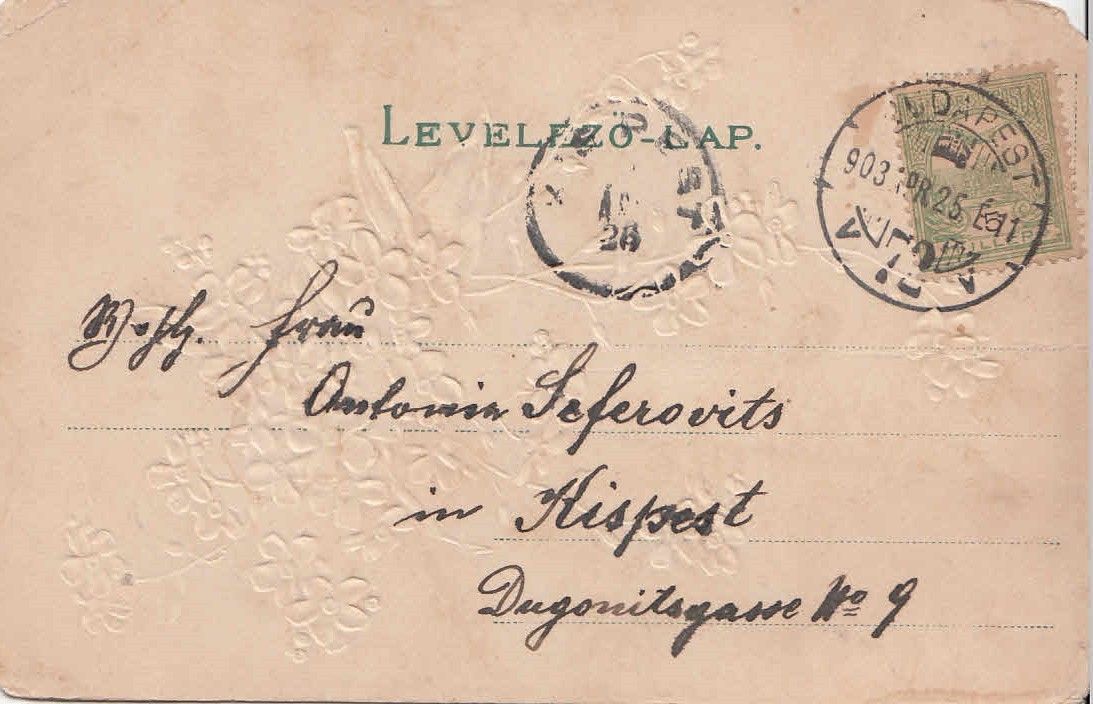 LEVELEZŐ-LAP.
BUDAPEST
903 APR 25 É 11
26
Frau
Antonia Seferovits
in Kispest
Dugonitsgasse No 9